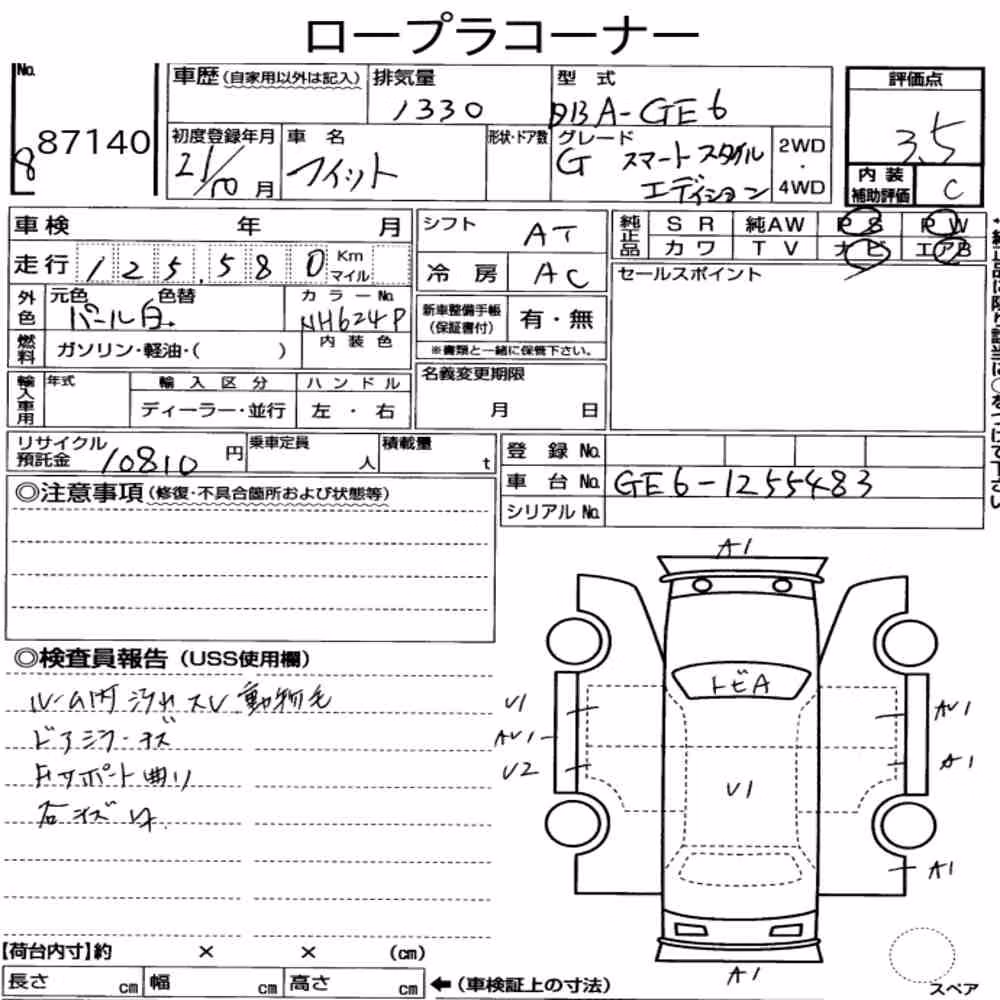 ロープラコーナー
No.
8 87140
車歴 (自家用以外は記入)
排気量
1330
型 式
DBA-GE6
初度登録年月
21/10 月
車 名
フィット
形状・ドア数
グレード
G スマートスタイル
エディション
2WD
・
4WD
評価点
3.5
内 装
補助評価
C
車検 年 月
走行 125,580 Km
マイル
外色
元色 色替
パール白
カラーNo
NH624P
燃料
ガソリン・軽油・( )
内 装 色
輸入車用
年式
輸 入 区 分
ディーラー・並行
ハ ン ド ル
左 ・ 右
シフト
AT
冷 房
AC
新車整備手帳
(保証書付)
有・無
※書類と一緒に保管下さい。
名義変更期限
月 日
純正品
S R 純AW P S P W
カ ワ T V ナ ビ エアB
セールスポイント
リサイクル
預託金 10810 円
乗車定員
人
積載量
t
登 録 No.
車 台 No. GE6-1255483
シリアル No.
◎注意事項 (修復・不具合箇所および状態等)
◎検査員報告 (USS使用欄)
ルーム内 汚れ スレ 動物毛
ドアミラーキズ
Fサポート曲り
A1
トビA
U1
AU1
U2
U1
AU1
A1
A1
A1
スペア
【荷台内寸】約 × × (cm)
長さ cm 幅 cm 高さ cm ←(車検証上の寸法)